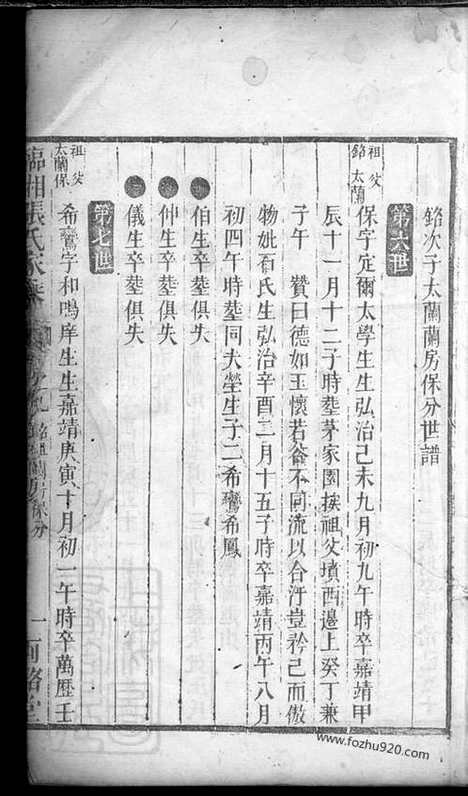 銘次子太蘭蘭房保分世譜
第六世
祖銘 父太蘭
保字定爾太學生生弘治己未九月初九午時卒嘉靖甲
辰十一月十二子時塟茅家園挨祖父墳酉邊上癸丁兼
子午 贊曰德如玉懷若谷不同流以合汙豈矜己而傲
物妣石氏生弘治辛酉二月十五子時卒嘉靖丙午八月
初四午時塟同夫塋生子二希鸞希鳳
伯生卒塟俱失
仲生卒塟俱失
儀生卒塟俱失
第七世
祖太蘭 父保
希鸞字和鳴庠生生嘉靖庚寅十月初一午時卒萬歷壬
臨湘張氏家乘 銘祖蘭房保分
www.fozhu920.com